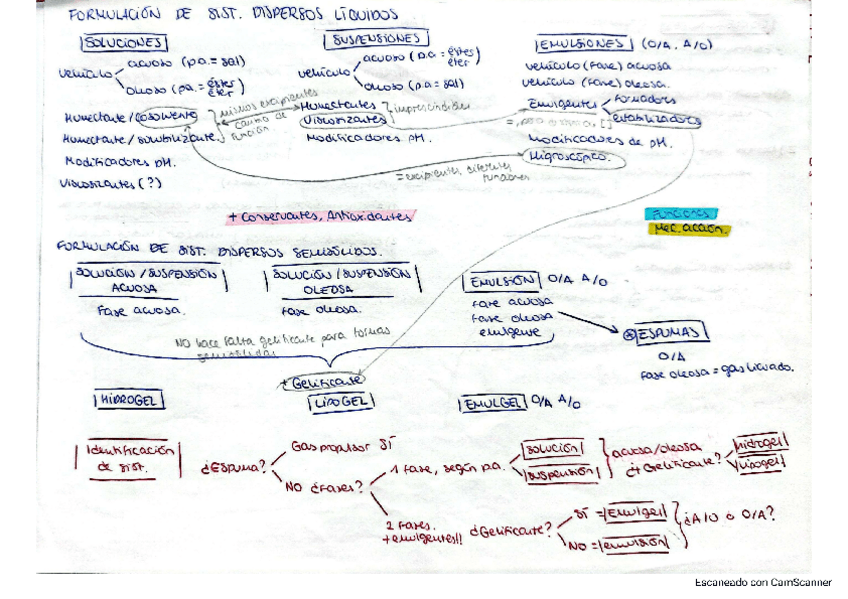 FORMULACIÓN DE SIST. DISPERSOS LÍQUIDOS
SOLUCIONES
vehículo
acuoso (p.a. = sal)
oleoso (p.a. = éster
éter)
Humectante/cosolvente
Humectante/solubilizante.
Modificadores pH.
Viscosizantes (?)
mismos excipientes
cambio de
función
SUSPENSIONES
vehículo
acuoso (p.a. = éster
éter)
oleoso (p.a. = sal)
Humectantes
Viscosizantes
imprescindibles
Modificadores pH.
EMULSIONES (O/A, A/O)
vehículo (fase) acuosa
vehículo (fase) oleosa.
Emulgentes
formadores
estabilizadores
Modificadores de pH.
Higroscópico.
= excipientes, diferentes
funciones
+ Conservantes, Antioxidantes
Funciones
Mec. acción.
FORMULACIÓN DE SIST. DISPERSOS SEMISÓLIDOS.
SOLUCIÓN/SUSPENSIÓN
ACUOSA
Fase acuosa.
SOLUCIÓN/SUSPENSIÓN
OLEOSA
Fase oleosa.
EMULSIÓN O/A A/O
fase acuosa
fase oleosa
emulgente
ESPUMAS
O/A
Fase oleosa = gas licuado.
NO hace falta gelificante para formas
semisólidas
+ Gelificante
HIDROGEL
LIPOGEL
EMULGEL O/A A/O
Identificación
de sist.
¿Espuma?
Gas propulsor SÍ
NO ¿Fases?
1 fase, según p.a.
solución
suspensión
acuosa/oleosa
¿+ Gelificante?
hidrogel
lipogel
2 fases.
+ emulgentes!!
¿Gelificante?
SÍ = Emulgel
NO = emulsión
¿A/O o O/A?
Escaneado con CamScanner